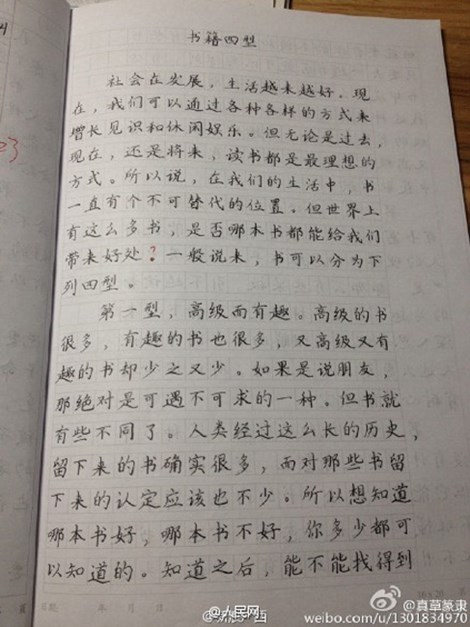 书籍四型
社会在发展，生活越来越好。现
在，我们可以通过各种各样的方式来
增长见识和休闲娱乐。但无论是过去，
现在，还是将来，读书都是最理想的
方式。所以说，在我们的生活中，书
一直有个不可替代的位置。但世界上
有这么多书，是否哪本书都能给我们
带来好处？一般说来，书可以分为下
列四型。
第一型，高级而有趣。高级的书
很多，有趣的书也很多，又高级又有
趣的书却少之又少。如果是说朋友，
那绝对是可遇不可求的一种。但书就
有些不同了。人类经过这么长的历史，
留下来的书确实很多，而对那些书留
下来的认定应该也不少。所以想知道
哪本书好，哪本书不好，你多少都可
以知道的。知道之后，能不能找得到
年 月 日
人民网
@真草篆隶
weibo.com/u/1301834970